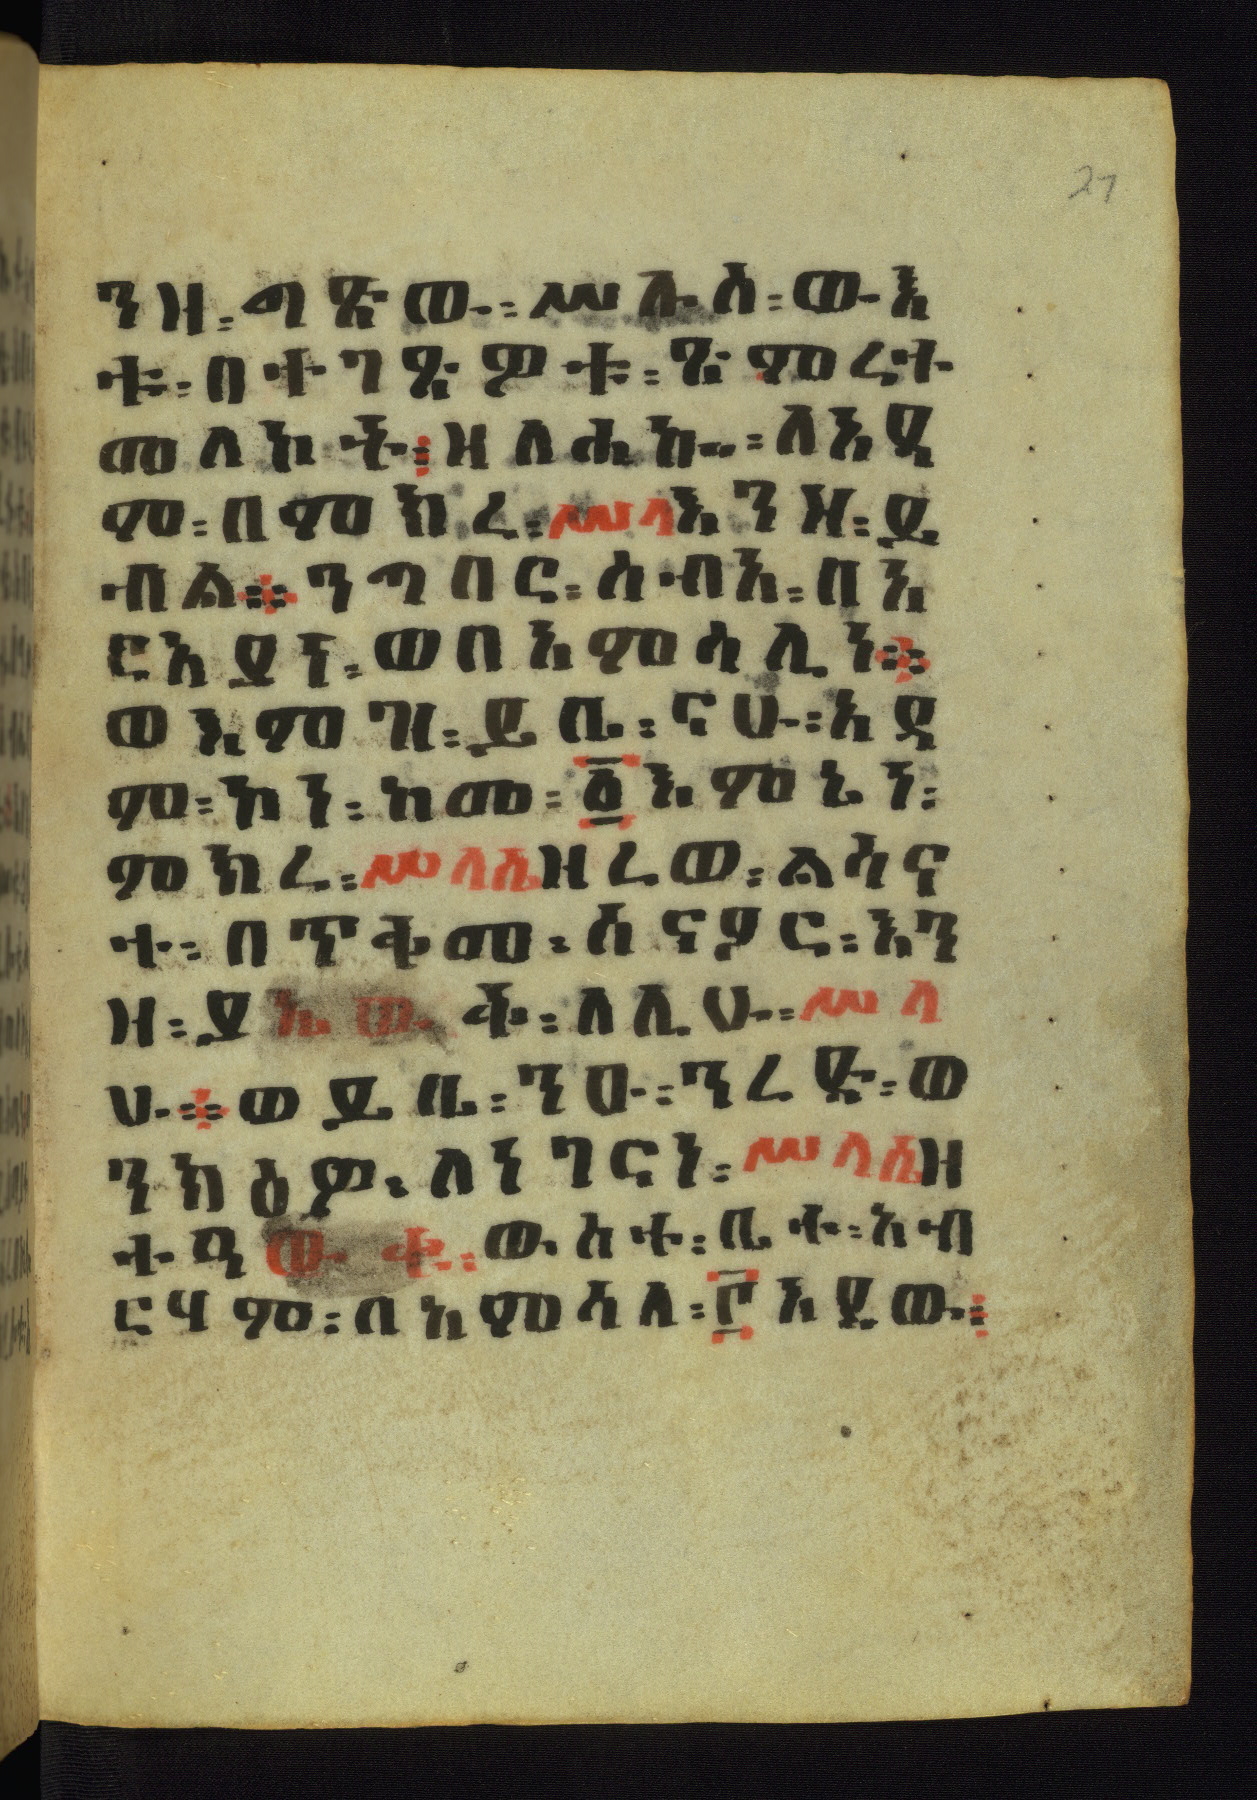 27
ንዘ፡ጣጵው፡ሥሉስ፡ውእ
ቱ፡በተገጽዎቱ፡ጽምረተ
መለኮት፡ዘለሐኩ፡ለአዳ
ም፡በምክረ፡ሥላእንዘ፡ይ
ብል፡ንግበር፡ሰብአ፡በአ
ርአያነ፡ወበአምሳሊነ፡
ወእምዝ፡ይቤ፡ናሁ፡አዳ
ም፡ኮነ፡ከመ፡፩እምኔነ፡
ምክረ፡ሥላሴዘረወ፡ልሳና
ተ፡በጥቅመ፡ሰናዖር፡እን
ዘ፡ያ ቅ፡ለሊሁ፡ሥላ
ሁ፡ወይቤ፡ንዑ፡ንረድ፡ወ
ንክዕው፡ለነገርነ፡ሥላሴዘ
ተዓውቁ፡ውስተ፡ቤተ፡አብ
ርሃም፡በአምሳለ፡፫እደው፡